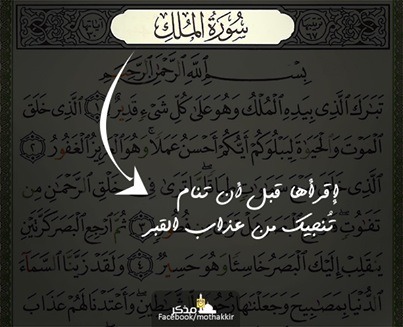 سُورَةُ المُلْكِ
بِسْمِ اللَّهِ الرَّحْمَٰنِ الرَّحِيمِ
تَبَارَكَ الَّذِي بِيَدِهِ الْمُلْكُ وَهُوَ عَلَىٰ كُلِّ شَيْءٍ قَدِيرٌ ١ الَّذِي خَلَقَ
الْمَوْتَ وَالْحَيَوٰةَ لِيَبْلُوَكُمْ أَيُّكُمْ أَحْسَنُ عَمَلًا وَهُوَ الْعَزِيزُ الْغَفُورُ ٢
الَّذِي تَرَىٰ فِي خَلْقِ الرَّحْمَٰنِ مِن
إقرأها قبل أن تنام
تَفَٰوُتٍ ثُمَّ ارْجِعِ الْبَصَرَ كَرَّتَيْنِ
تُنجيك من عذاب القبر
يَنقَلِبْ إِلَيْكَ الْبَصَرُ خَاسِئًا وَهُوَ حَسِيرٌ ٤ وَلَقَدْ زَيَّنَّا السَّمَاءَ
الدُّنْيَا بِمَصَٰبِيحَ وَجَعَلْنَٰهَا وَأَعْتَدْنَا لَهُمْ عَذَابَ
مذكر
Facebook/mothakkir